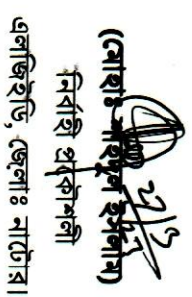 (মোঃ সাইফুল ইসলাম)
নির্বাহী প্রকৌশলী
এলজিইডি, জেলাঃ নাটোর।